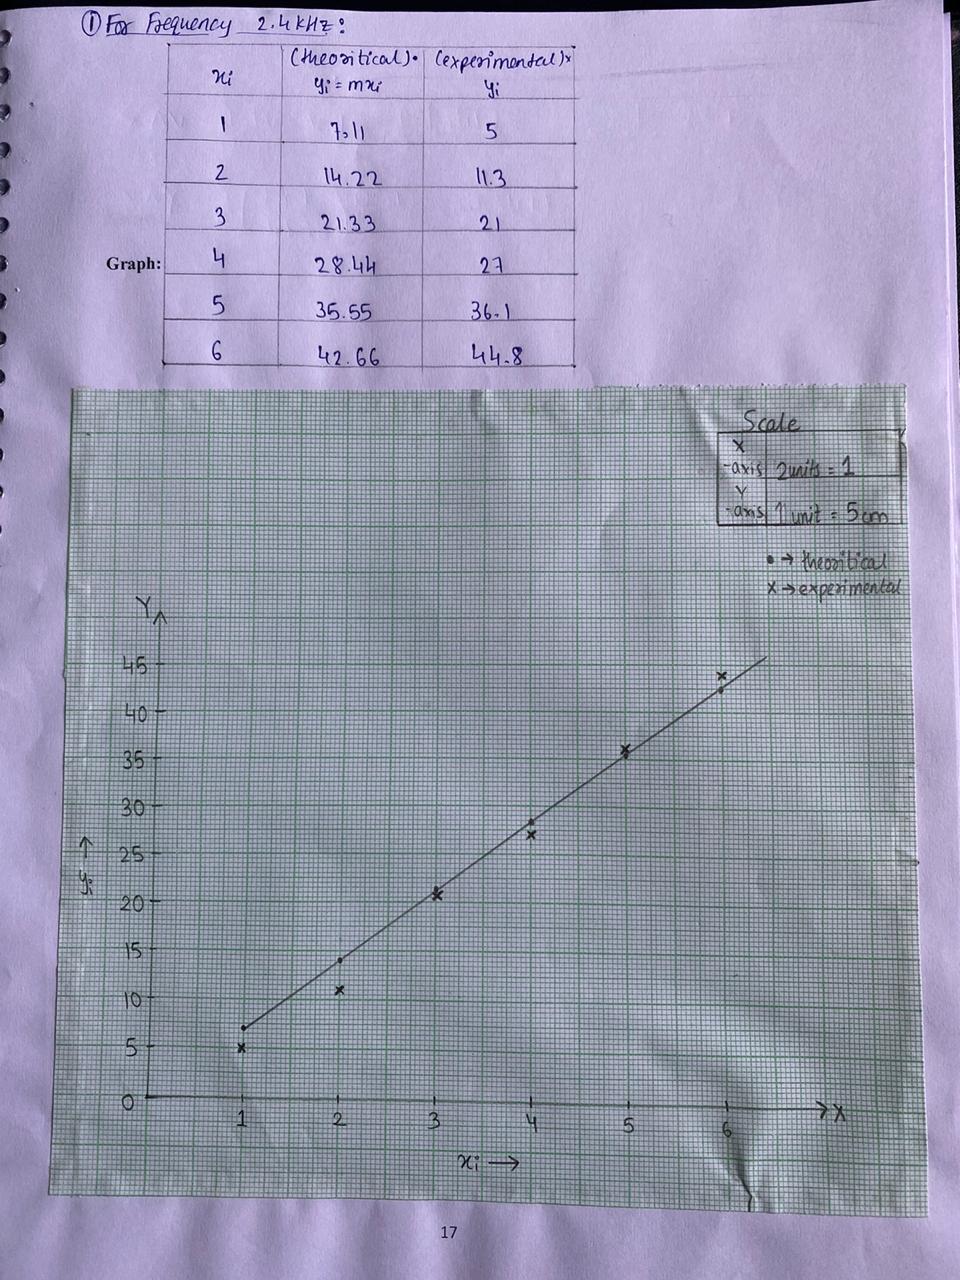 ① For Frequency 2.4 kHz :
xi (theoritical)• yi = mxi (experimental)x yi
1 7.11 5
2 14.22 11.3
3 21.33 21
Graph: 4 28.44 27
5 35.55 36.1
6 42.66 44.8
Scale
X -axis 2units = 1
Y -axis 1 unit = 5cm
• → theoritical
x → experimental
Y
45
40
35
30
25
yi
20
15
10
5
0
1 2 3 4 5 6 X
xi →
17